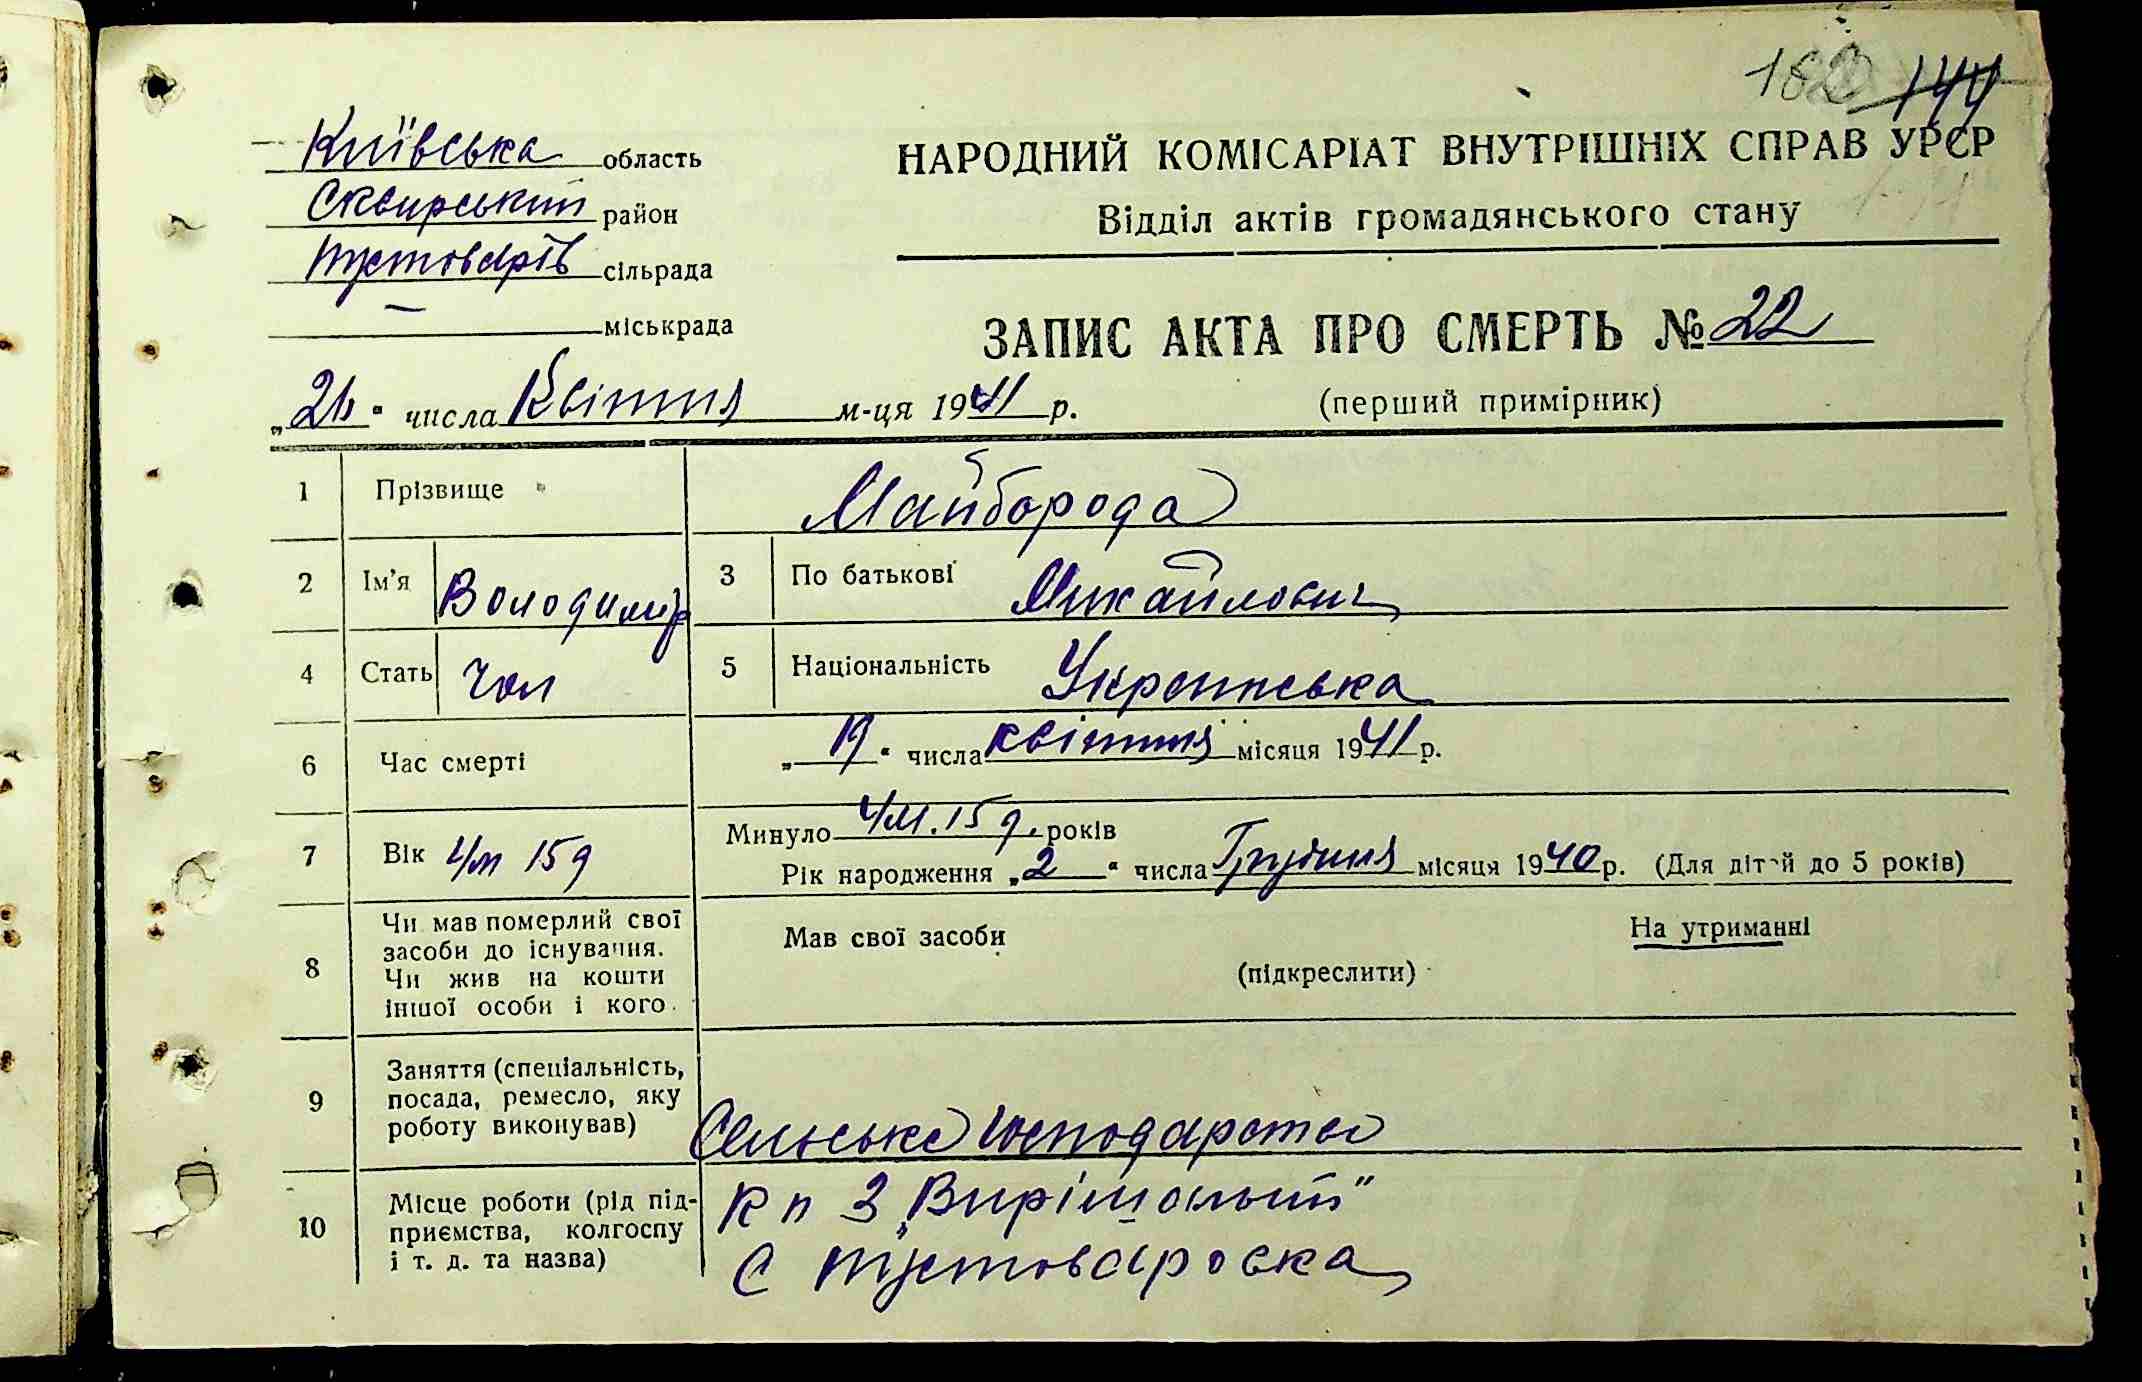 182 144
Київська область
Сквирський район
Пустоварів сільрада
міськрада
НАРОДНИЙ КОМІСАРІАТ ВНУТРІШНІХ СПРАВ УРСР
Відділ актів громадянського стану
ЗАПИС АКТА ПРО СМЕРТЬ № 22
(перший примірник)
„ " числа Квітня м-ця 1941 р.
1 Прізвище Майборода
2 Ім'я Володимир 3 По батькові Михайлович
4 Стать Чол 5 Національність Українська
6 Час смерті „19" числа квітня місяця 1941 р.
7 Вік 4/м 15д Минуло 4/м. 15 д. років
Рік народження „2" числа Грудня місяця 1940 р. (Для дітей до 5 років)
8 Чи мав померлий свої засоби до існування. Чи жив на кошти іншої особи і кого. Мав свої засоби На утриманні
(підкреслити)
9 Заняття (спеціальність, посада, ремесло, яку роботу виконував) Сельське господарство
10 Місце роботи (рід підприємства, колгоспу і т. д. та назва) К п З „Вирішальний"
С Пустоваровка